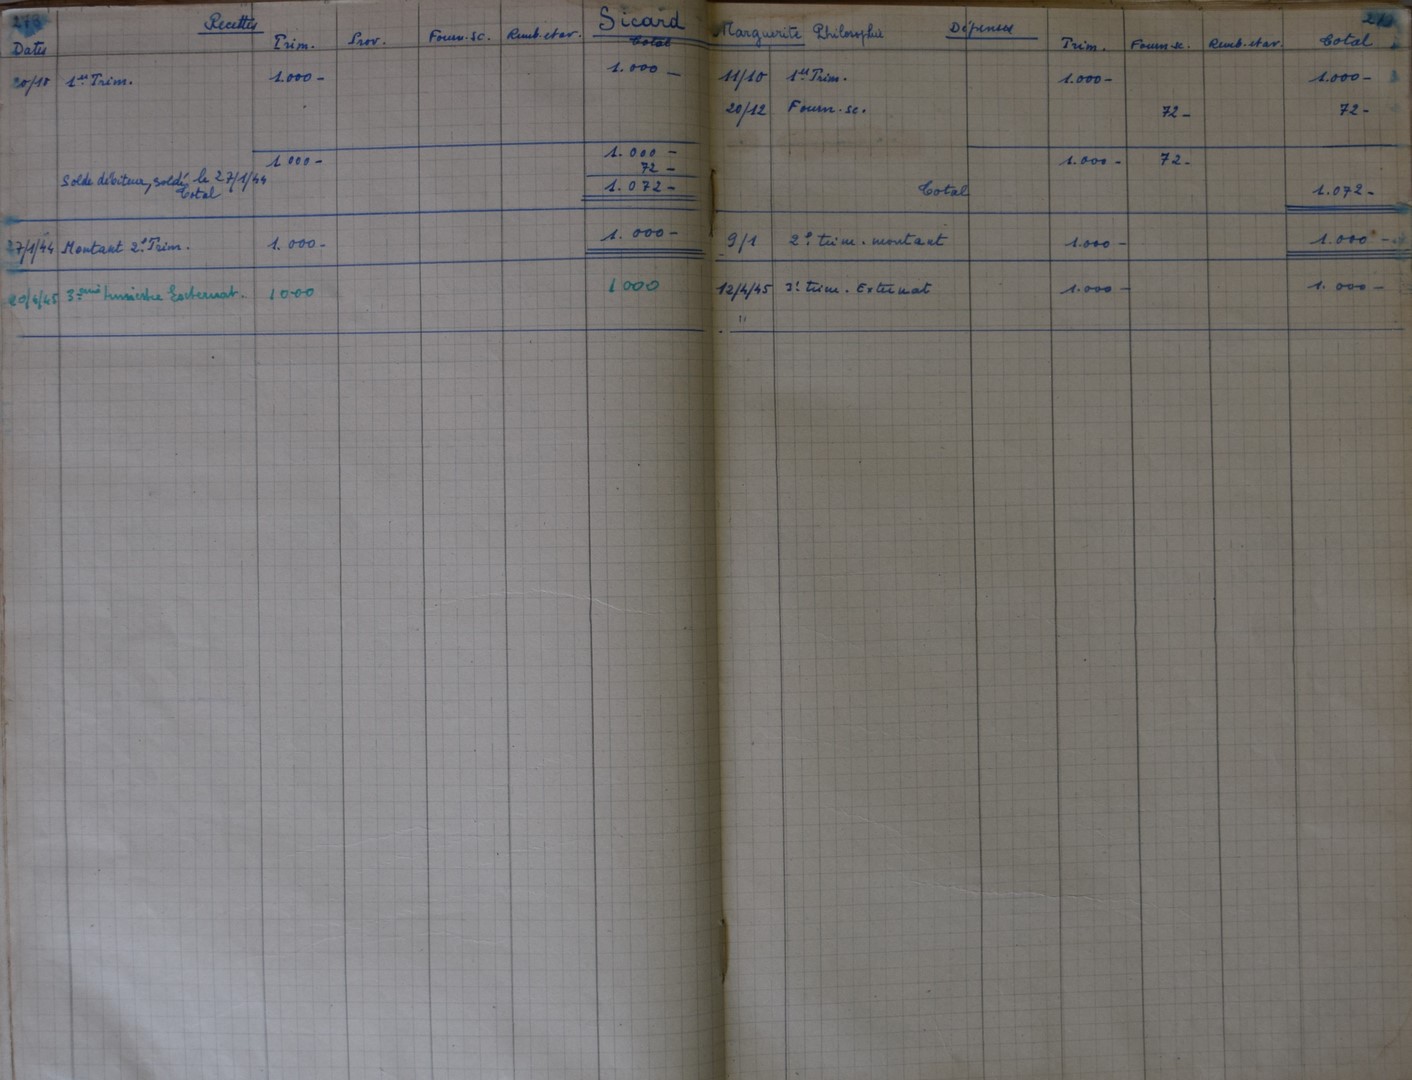 Recettes Sicard
Dates Trim. Prov. Fourn. sc. Remb. et av. Total
20/10 1er Trim. 1.000 - 1.000 -
1.000 - 1.000 -
Solde débiteur, soldé le 27/1/44 72 -
Total 1.072 -
27/1/44 Montant 2e Trim. 1.000 - 1.000 -
20/4/45 3ème trimestre Externat. 1000 1000
Marguerite Philosophie Dépenses
Trim. Fourn. sc. Remb. et av. Total
11/10 1er Trim. 1.000 - 1.000 -
20/12 Fourn. sc. 72 - 72 -
1.000 - 72 -
Total 1.072 -
9/1 2e trim. montant 1.000 - 1.000 -
12/4/45 3e trim. Externat 1.000 - 1.000 -
"